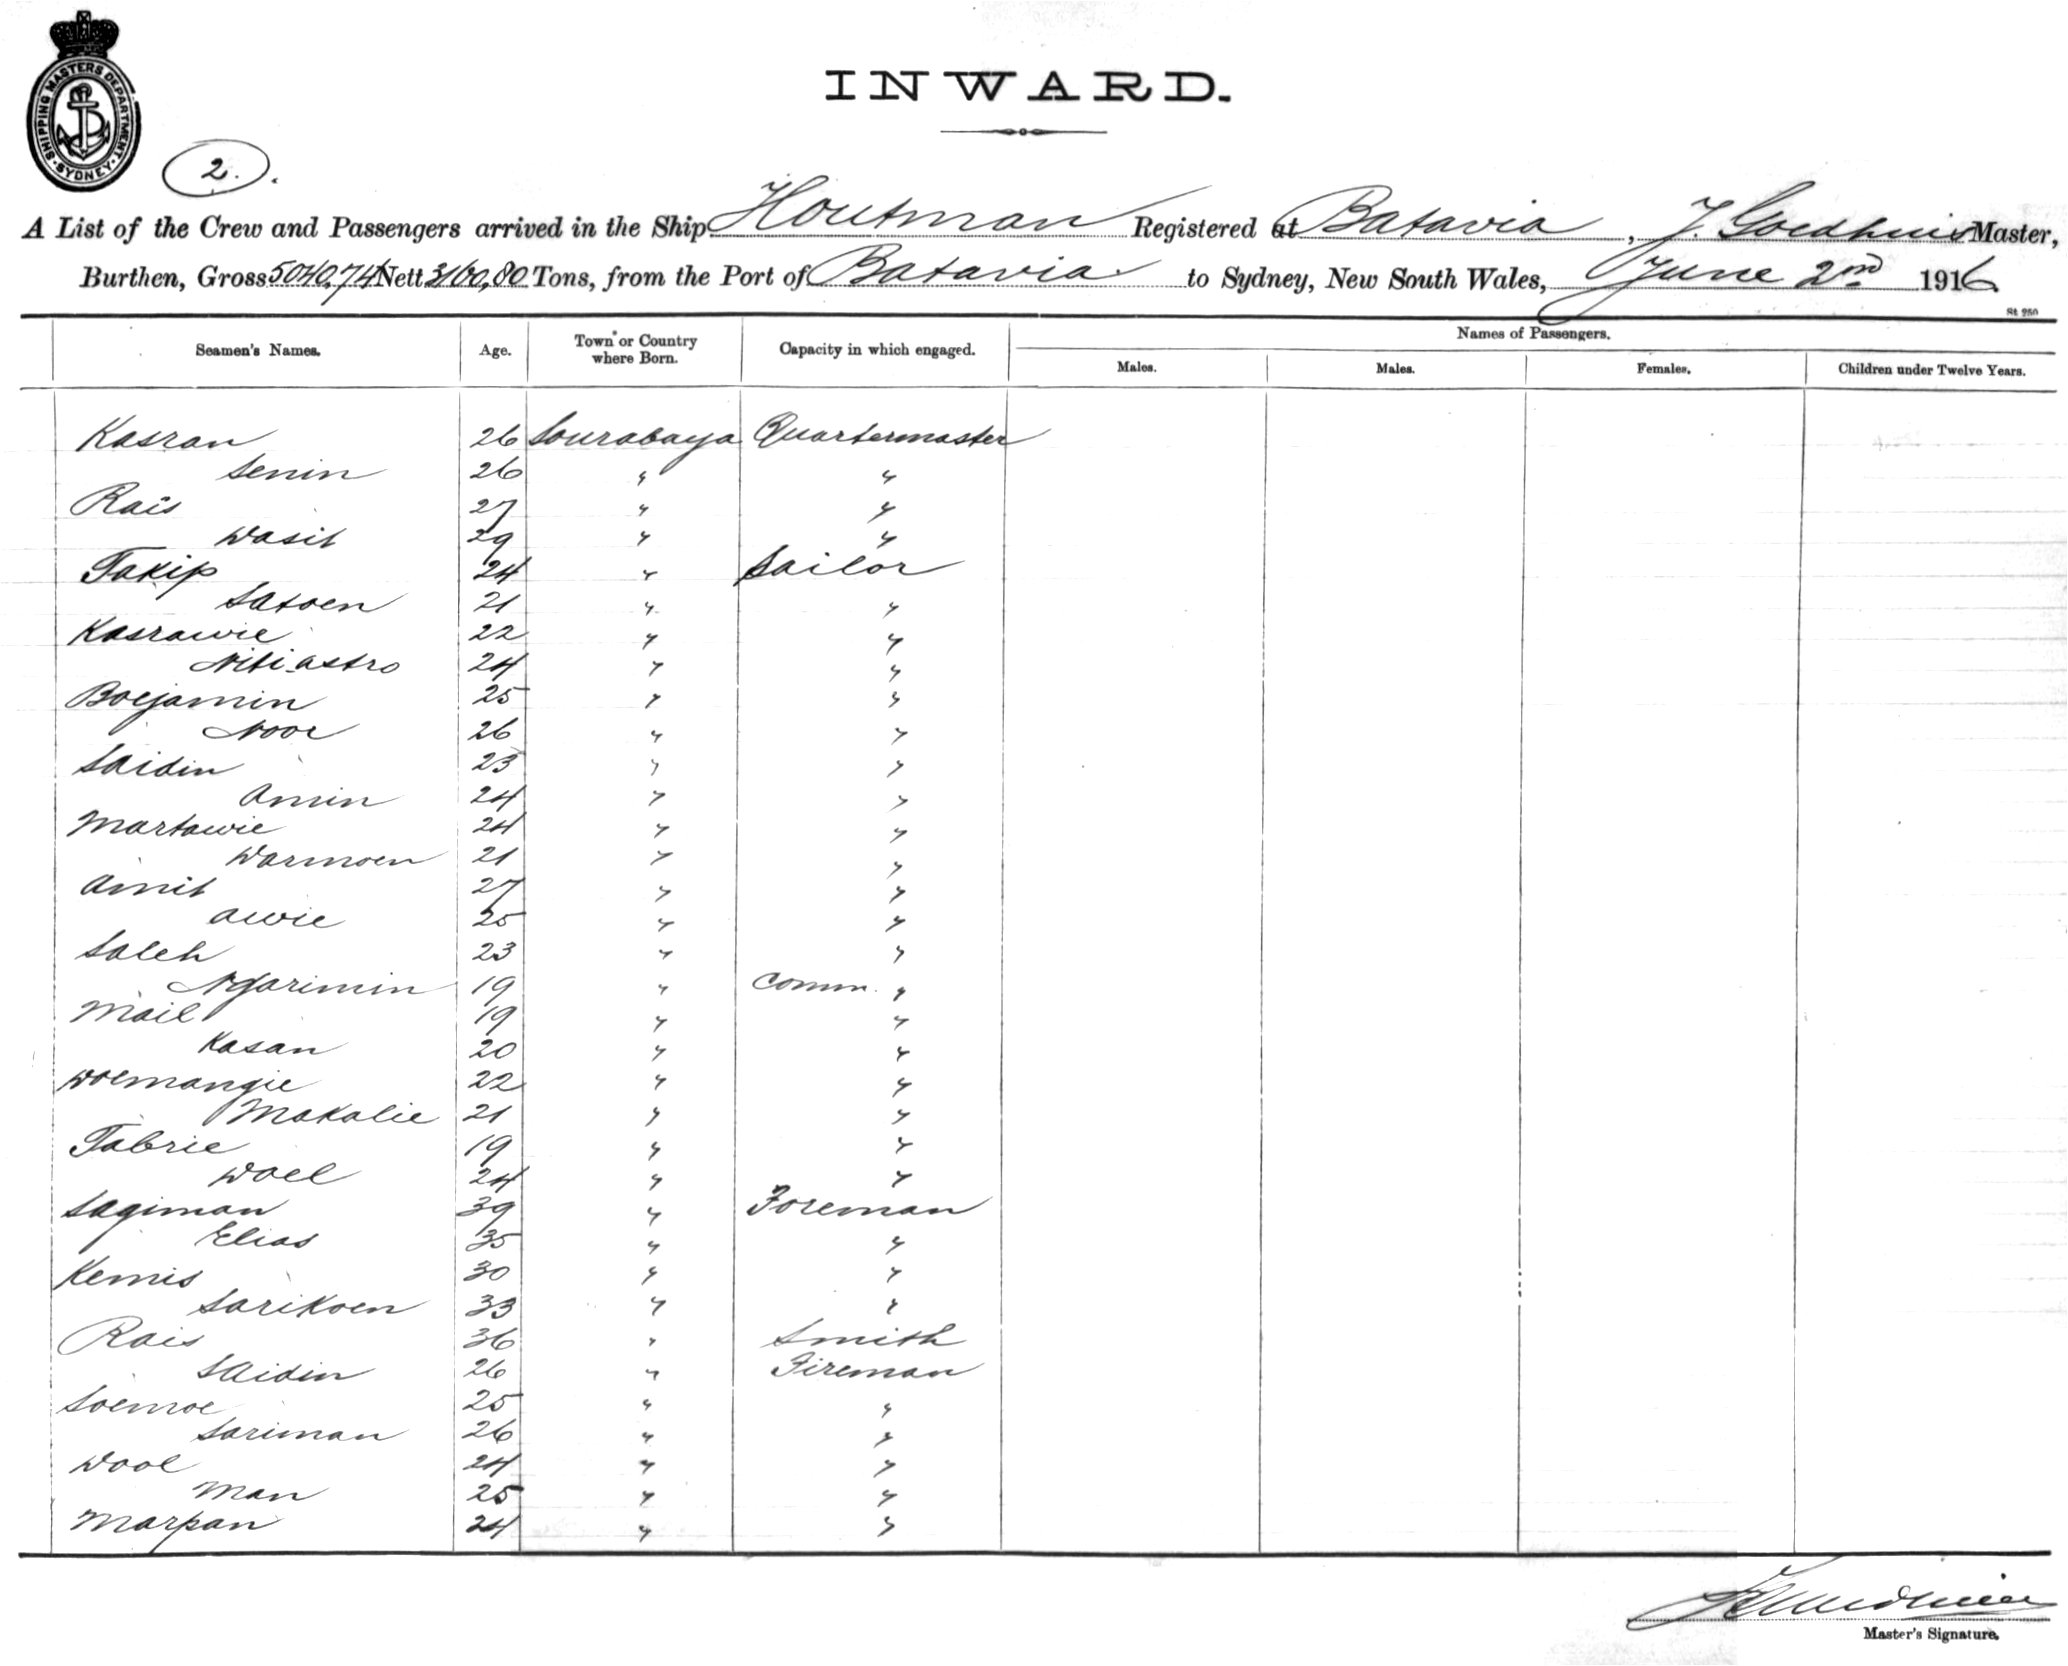 SHIPPING MASTERS DEPARTMENT · SYDNEY ·
INWARD.
2.
A List of the Crew and Passengers arrived in the Ship Houtman Registered at Batavia, J. Goedhuis Master,
Burthen, Gross 5040,74 Nett 3160,80 Tons, from the Port of Batavia to Sydney, New South Wales, June 2nd 1916
St 250
Seamen's Names. Age. Town or Country where Born. Capacity in which engaged. Names of Passengers.
Males. Males. Females. Children under Twelve Years.
Kasran 26 Sourabaya Quartermaster
Senin 26 " "
Rais 27 " "
Wasit 29 " "
Takip 24 " Sailor
Satoen 21 " "
Kasrawie 22 " "
Niti astro 24 " "
Boejamin 25 " "
Noor 26 " "
Saidin 23 " "
Amin 24 " "
Martawie 24 " "
Warmoen 21 " "
Amit 27 " "
Awie 25 " "
Saleh 23 " "
Ngarimin 19 " Comm. "
Mail 19 " "
Kasan 20 " "
Woemangie 22 " "
Makalie 21 " "
Tabrie 19 " "
Wael 24 " "
Sagiman 39 " Foreman
Elias 35 " "
Kemis 30 " "
Sarikoen 33 " "
Rais 36 " Smith
Saidin 26 " Fireman
Soemoe 25 " "
Sariman 26 " "
Wool 24 " "
Man 25 " "
Marpan 24 " "
Master's Signature.